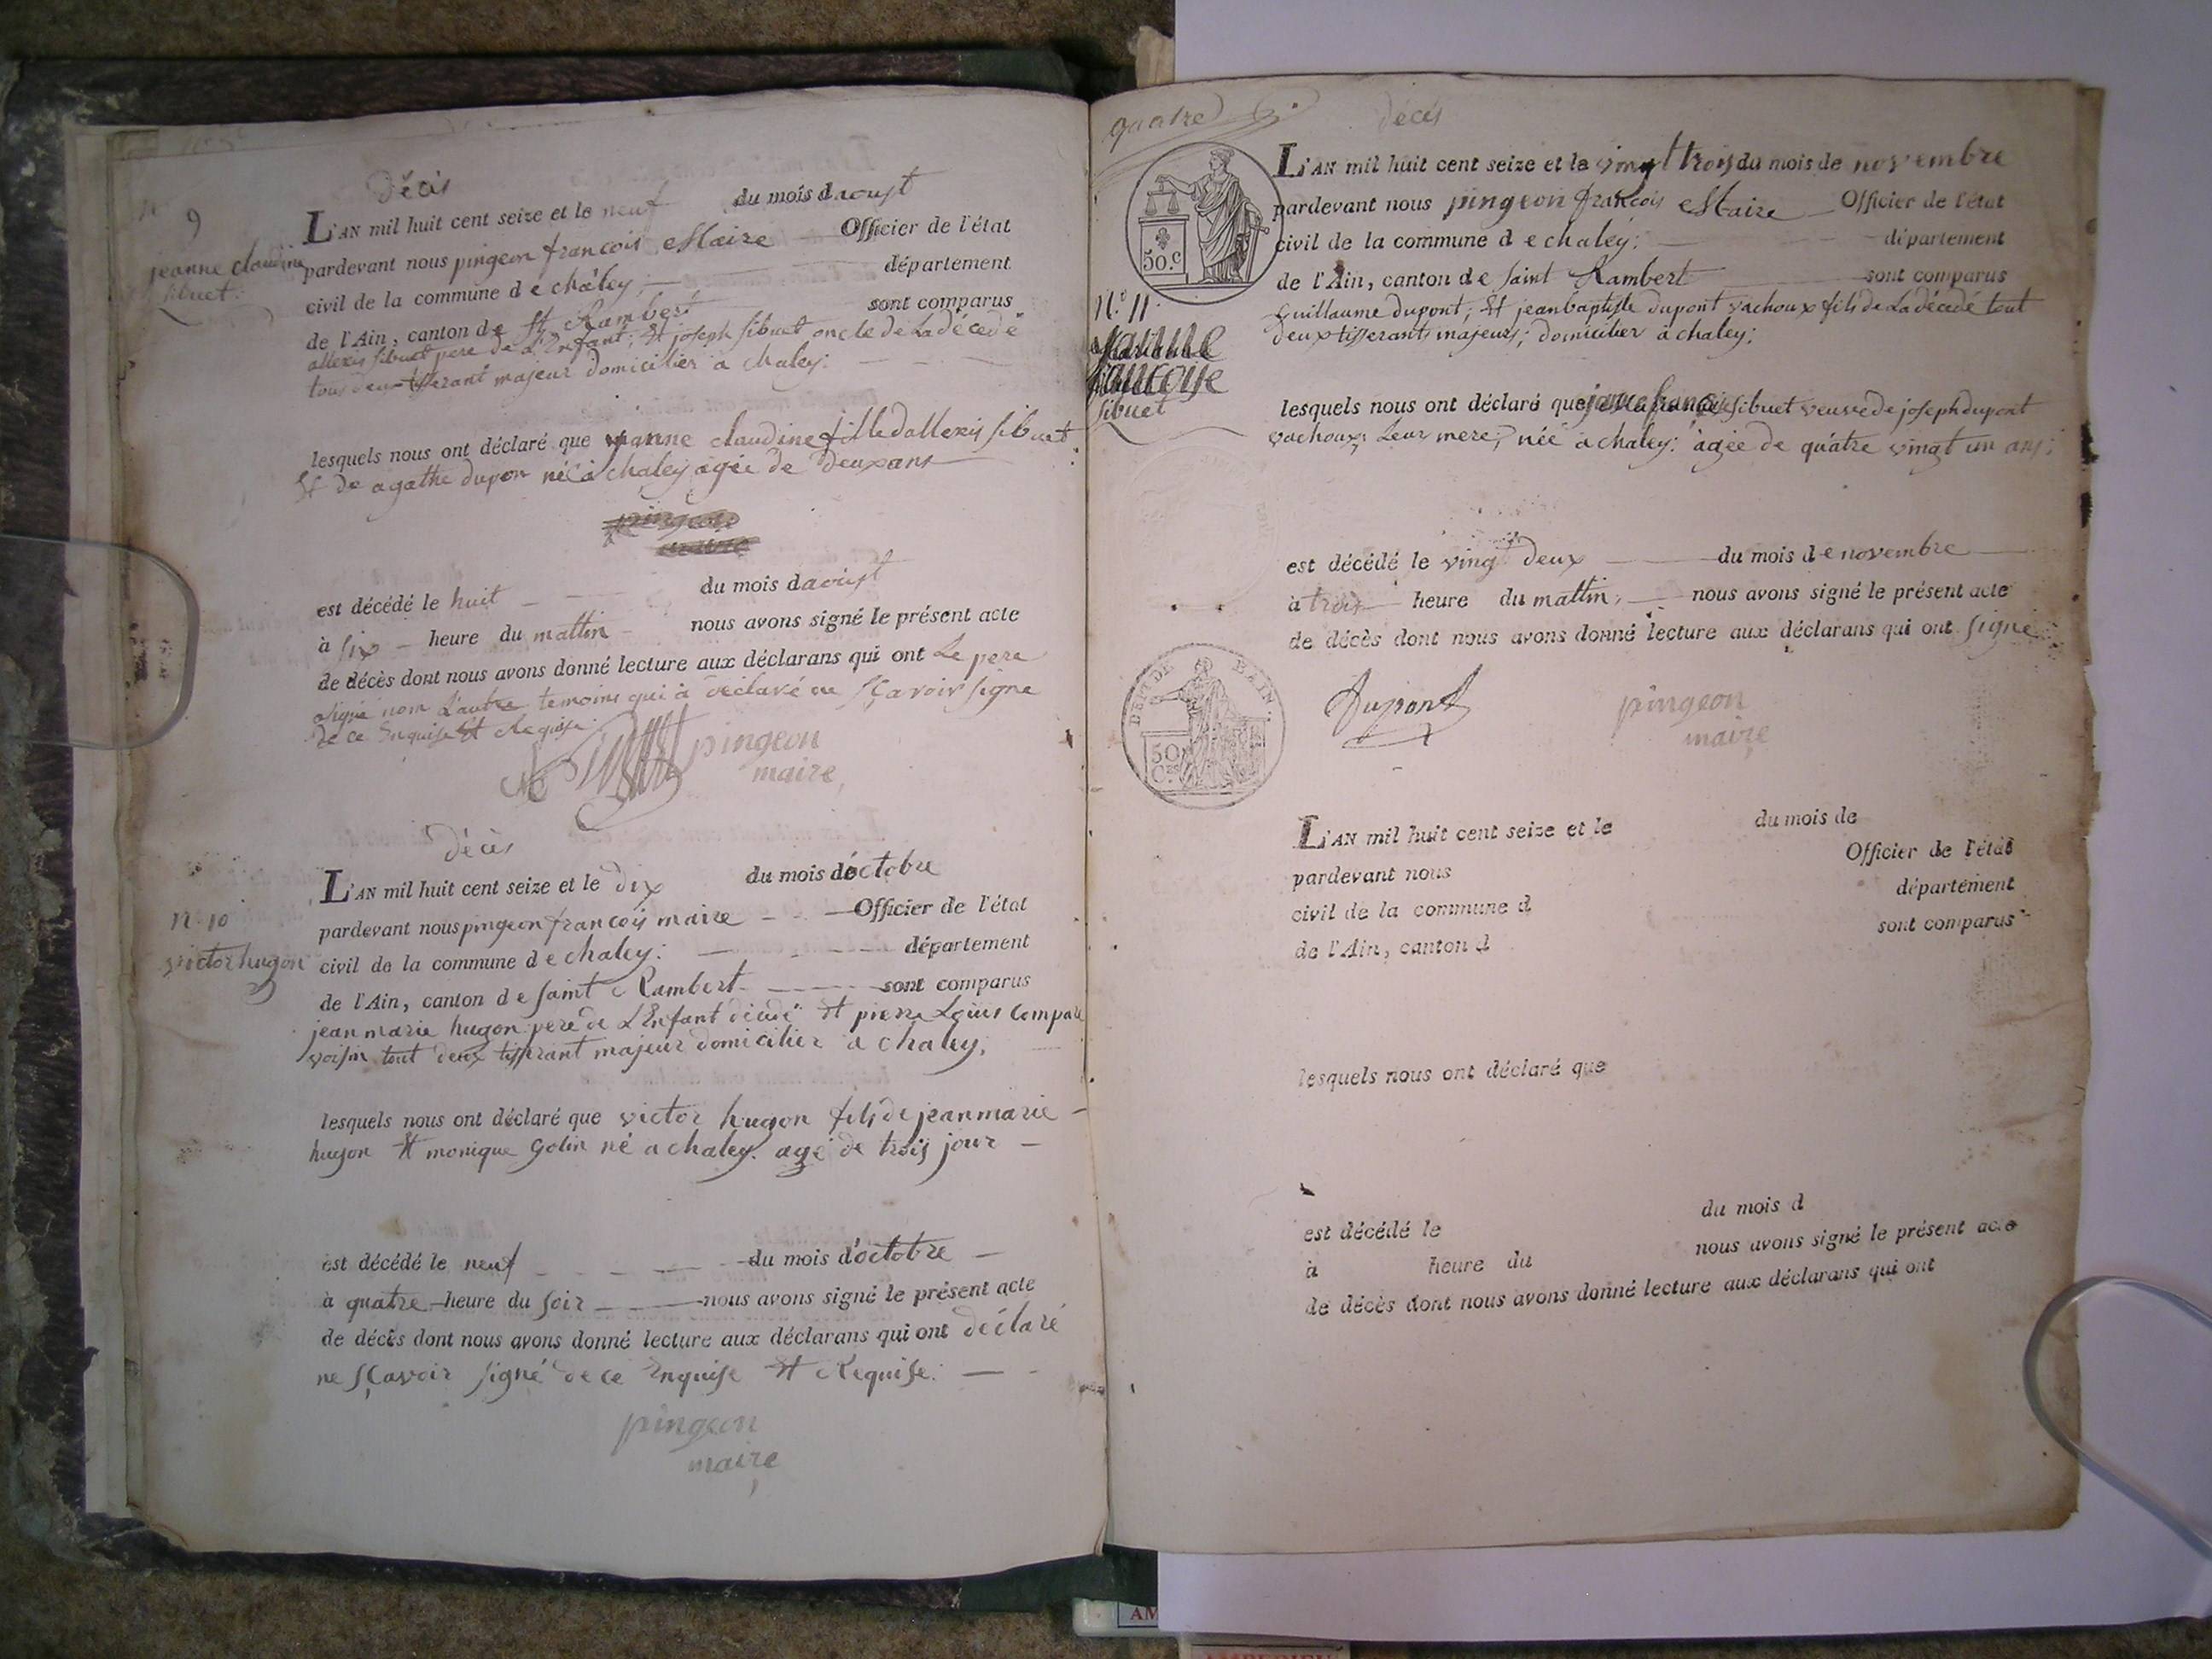 décès
N° 9
jeanne claudine
sibuet.
L'AN mil huit cent seize et le neuf du mois daoust
pardevant nous pingeon francois Maire Officier de l'état
civil de la commune de chaley; département
de l'Ain, canton de St Rambert sont comparus
allexis sibuet pere de L'Enfant; Et joseph sibuet oncle de La décedé
tous deux tisserant majeur domicilier a chaley:
lesquels nous ont déclaré que jeanne claudine fille dallexis sibuet
Et de agathe dupon née a chaley agée de deux ans
pingeon
maire
est décédé le huit du mois daoust
à six heure du mattin nous avons signé le présent acte
de décès dont nous avons donné lecture aux déclarans qui ont Le pere
signé nom L'autre temoins qui à declaré ne sçavoir signe
de ce Enquise Et Requise.
pingeon
maire,
décès
n. 10
victor hugon
L'AN mil huit cent seize et le dix du mois d'octobre
pardevant nous pingeon francois maire Officier de l'état
civil de la commune de chaley: département
de l'Ain, canton de saint Rambert sont comparus
jean marie hugon pere de L'Enfant décédé Et pierre Louis Compare
voisin tout deux tisserant majeur domicilier a chaley;
lesquels nous ont déclaré que victor hugon fils de jean marie
hugon Et monique Golin né a chaley. agé de trois jour
est décédé le neuf du mois d'octobre
à quatre heure du soir nous avons signé le présent acte
de décès dont nous avons donné lecture aux déclarans qui ont déclaré
ne sçavoir signé de ce Enquise Et Requise.
pingeon
maire
quatre
décés
50.c
L'AN mil huit cent seize et le vingt trois du mois de novembre
pardevant nous pingeon francois Maire Officier de l'état
civil de la commune de chaley; département
de l'Ain, canton de saint Rambert sont comparus
N.° 11
sibuet
Guillaume dupont; Et jean baptiste dupont vachoux fils de La décedé tout
deux tisserants majeurs; domicilier à chaley;
lesquels nous ont déclaré que sibuet veuve de joseph dupont
vachoux; Leur mere; née a chaley: agée de quatre vingt un ans;
est décédé le vingt deux du mois de novembre
à trois heure du mattin; nous avons signé le présent acte
de décès dont nous avons donné lecture aux déclarans qui ont signé
50
Dupont
pingeon
maire
L'AN mil huit cent seize et le du mois de
pardevant nous Officier de l'état
civil de la commune d département
de l'Ain, canton d sont comparus
lesquels nous ont déclaré que
est décédé le du mois d
à heure du nous avons signé le présent acte
de décès dont nous avons donné lecture aux déclarans qui ont